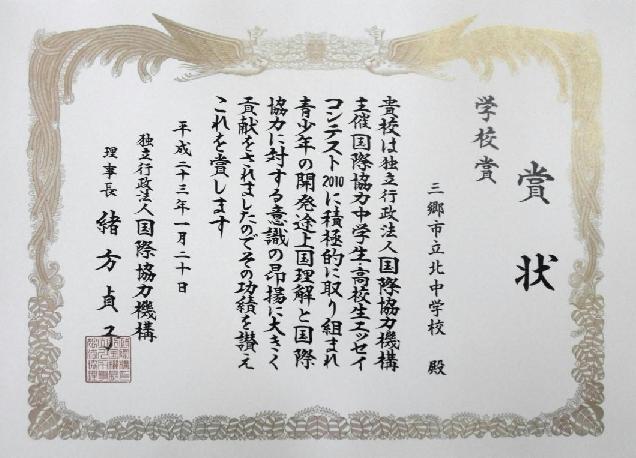 賞状
学校賞
三郷市立北中学校 殿
貴校は独立行政法人国際協力機構
主催国際協力中学生・高校生エッセイ
コンテスト2010に積極的に取り組まれ
青少年の開発途上国理解と国際
協力に対する意識の昂揚に大きく
貢献をされましたのでその功績を讃え
これを賞します
平成二十三年一月二十日
独立行政法人国際協力機構
理事長 緒方貞子